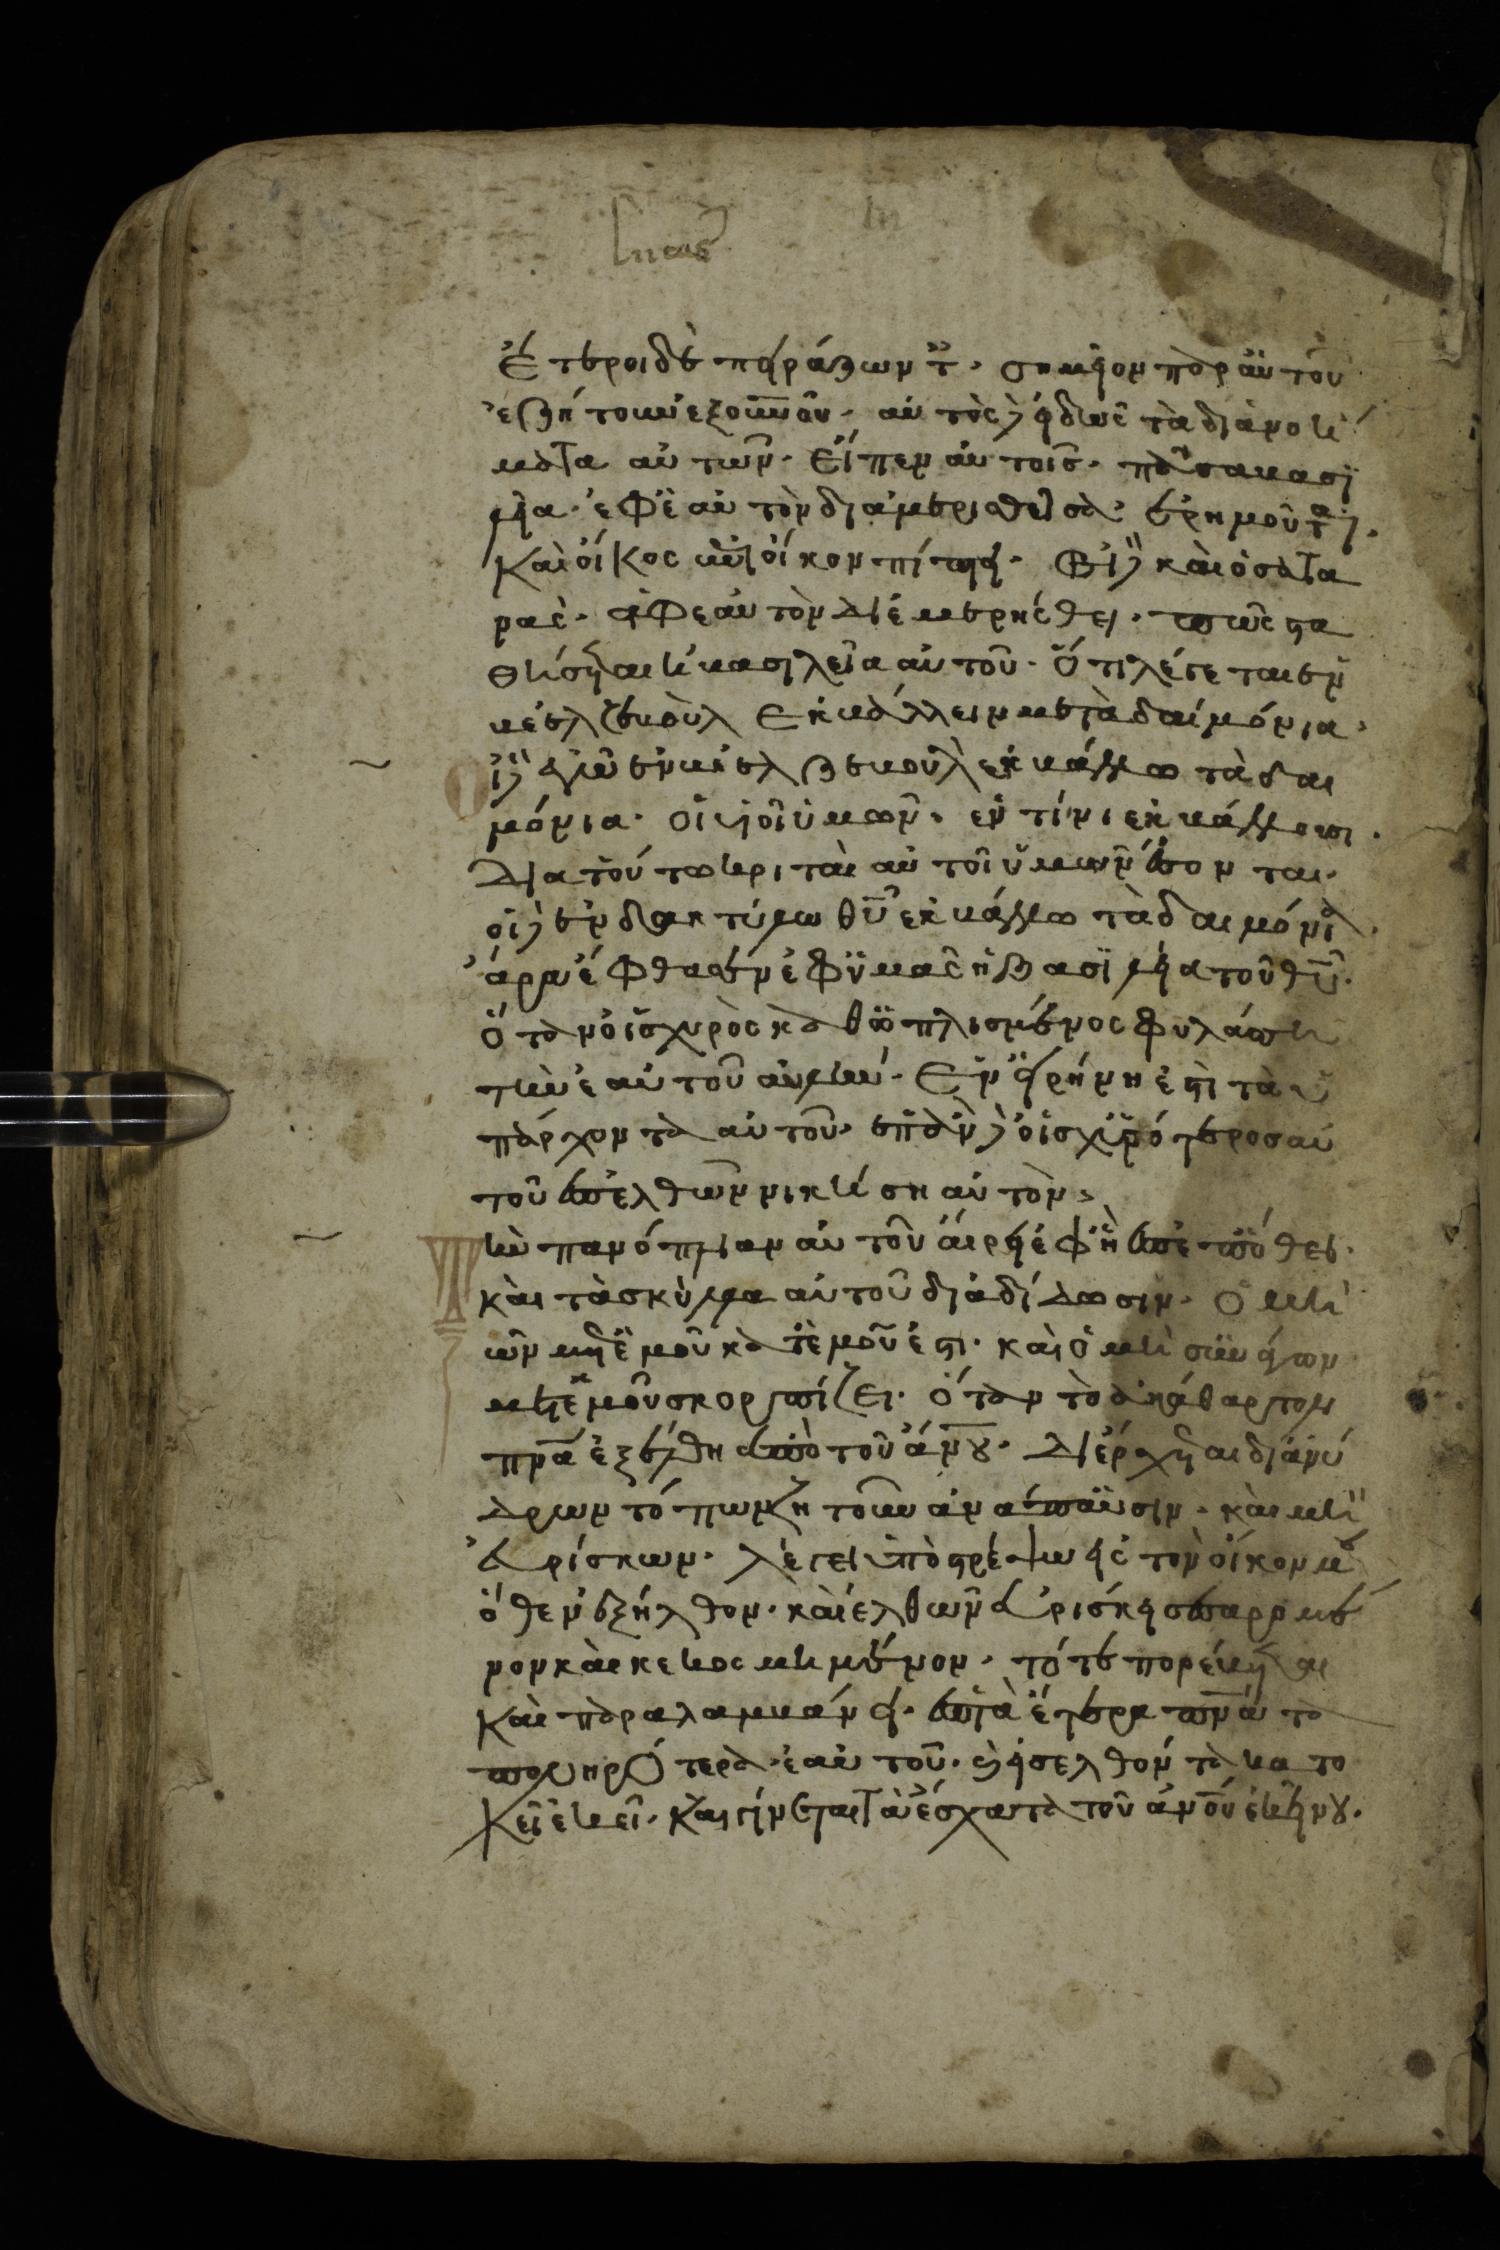 Lucas
Ἕτεροι δὲ πειράζωντ σημεῖον παρ αὐτοῦ
ἐζήτουν ἐξ οὐνοῦ. αὐτὸς δὲ εἰδὼς τὰ διανοή
ματα αὐτῶν. Εἶπεν αὐτοῖς. πᾶσα βασι
λεία ἐφ ἑαυτὸν διαμερισθεῖσα ἐρημοῦται.
Καὶ οἶκος ἐπὶ οἶκον πίπτει. Εἰ δὲ καὶ ὁ σατα
νᾶς ἐφ εαυτὸν διεμερήσθει. πῶς στα
θήσηται ἡ βασιλεία αὐτοῦ. Ὅτι λέγεται ἐν
βεελζεβοὺλ ἐκβάλλειν με τὰ δαιμόνια.
εἰ δὲ ἐγὼ ἐν βεελζεβοὺλ ἐκβάλλω τὰ δαι
μόνια. οἱ υἱοὶ ὑμῶν. ἐν τίνι ἐκβάλλουσι.
Διὰ τοῦτω κριταὶ αὐτοὶ ὑμῶν ἔσονται.
εἰ δὲ ἐν δακτύλω θῦ ἐκβάλλω τὰ δαιμόνια.
ἄρα ἔφθασεν ἐφ ὑμᾶς ἡ βασιλεία τοῦ θῦ.
Ὅταν ὁ ἰσχυρὸς καθωπλισμένος φυλάσση
τὴν ἑαυτοῦ αὐλήν. Ἐν εἰρήνη ἐστὶ τὰ ὑ
πάρχοντα αὐτοῦ. ἐπὰν δὲ ὁ ἰσχυρότερος αὐ
τοῦ ἐπελθὼν νικήση αὐτόν.
τὴν πανόπλιαν αὐτοῦ αἴρει ἐφ ἧ ἐπεπόθει.
καὶ τὰ σκύλα αὐτοῦ διαδίδωσιν. Ὁ μὴ
ὢν μετ ἐμοῦ κατ ἐμοῦ ἐστι. καὶ ὁ μὴ συνάγων
μετ ἐμοῦ σκορπίζει. Ὅταν τὸ ἀκάθαρτον
πνα ἐξέλθη ἀπὸ τοῦ ἀνου. Διέρχηται δι ἀνύ
δρων τόπων ζητοῦν ἀνάπαυσιν. καὶ μὴ
εὑρίσκων. λέγει ὑποστρέψω εἰς τὸν οἶκον μου
ὅθεν ἐξῆλθον. καὶ ἐλθὼν εὑρίσκει σεσαρομέ
νον καὶ κεκοσμημένον. τότε πορεύηται
καὶ παραλαμβάνει. ἑπτὰ ἕτερα πνατα
πονηρότερα ἑαυτοῦ. καὶ εἰσελθόντα κατο
κεῖ ἐκεῖ. καὶ γίνεται τὰ ἔσχατα τοῦ ἀνοῦ ἐκείνου.